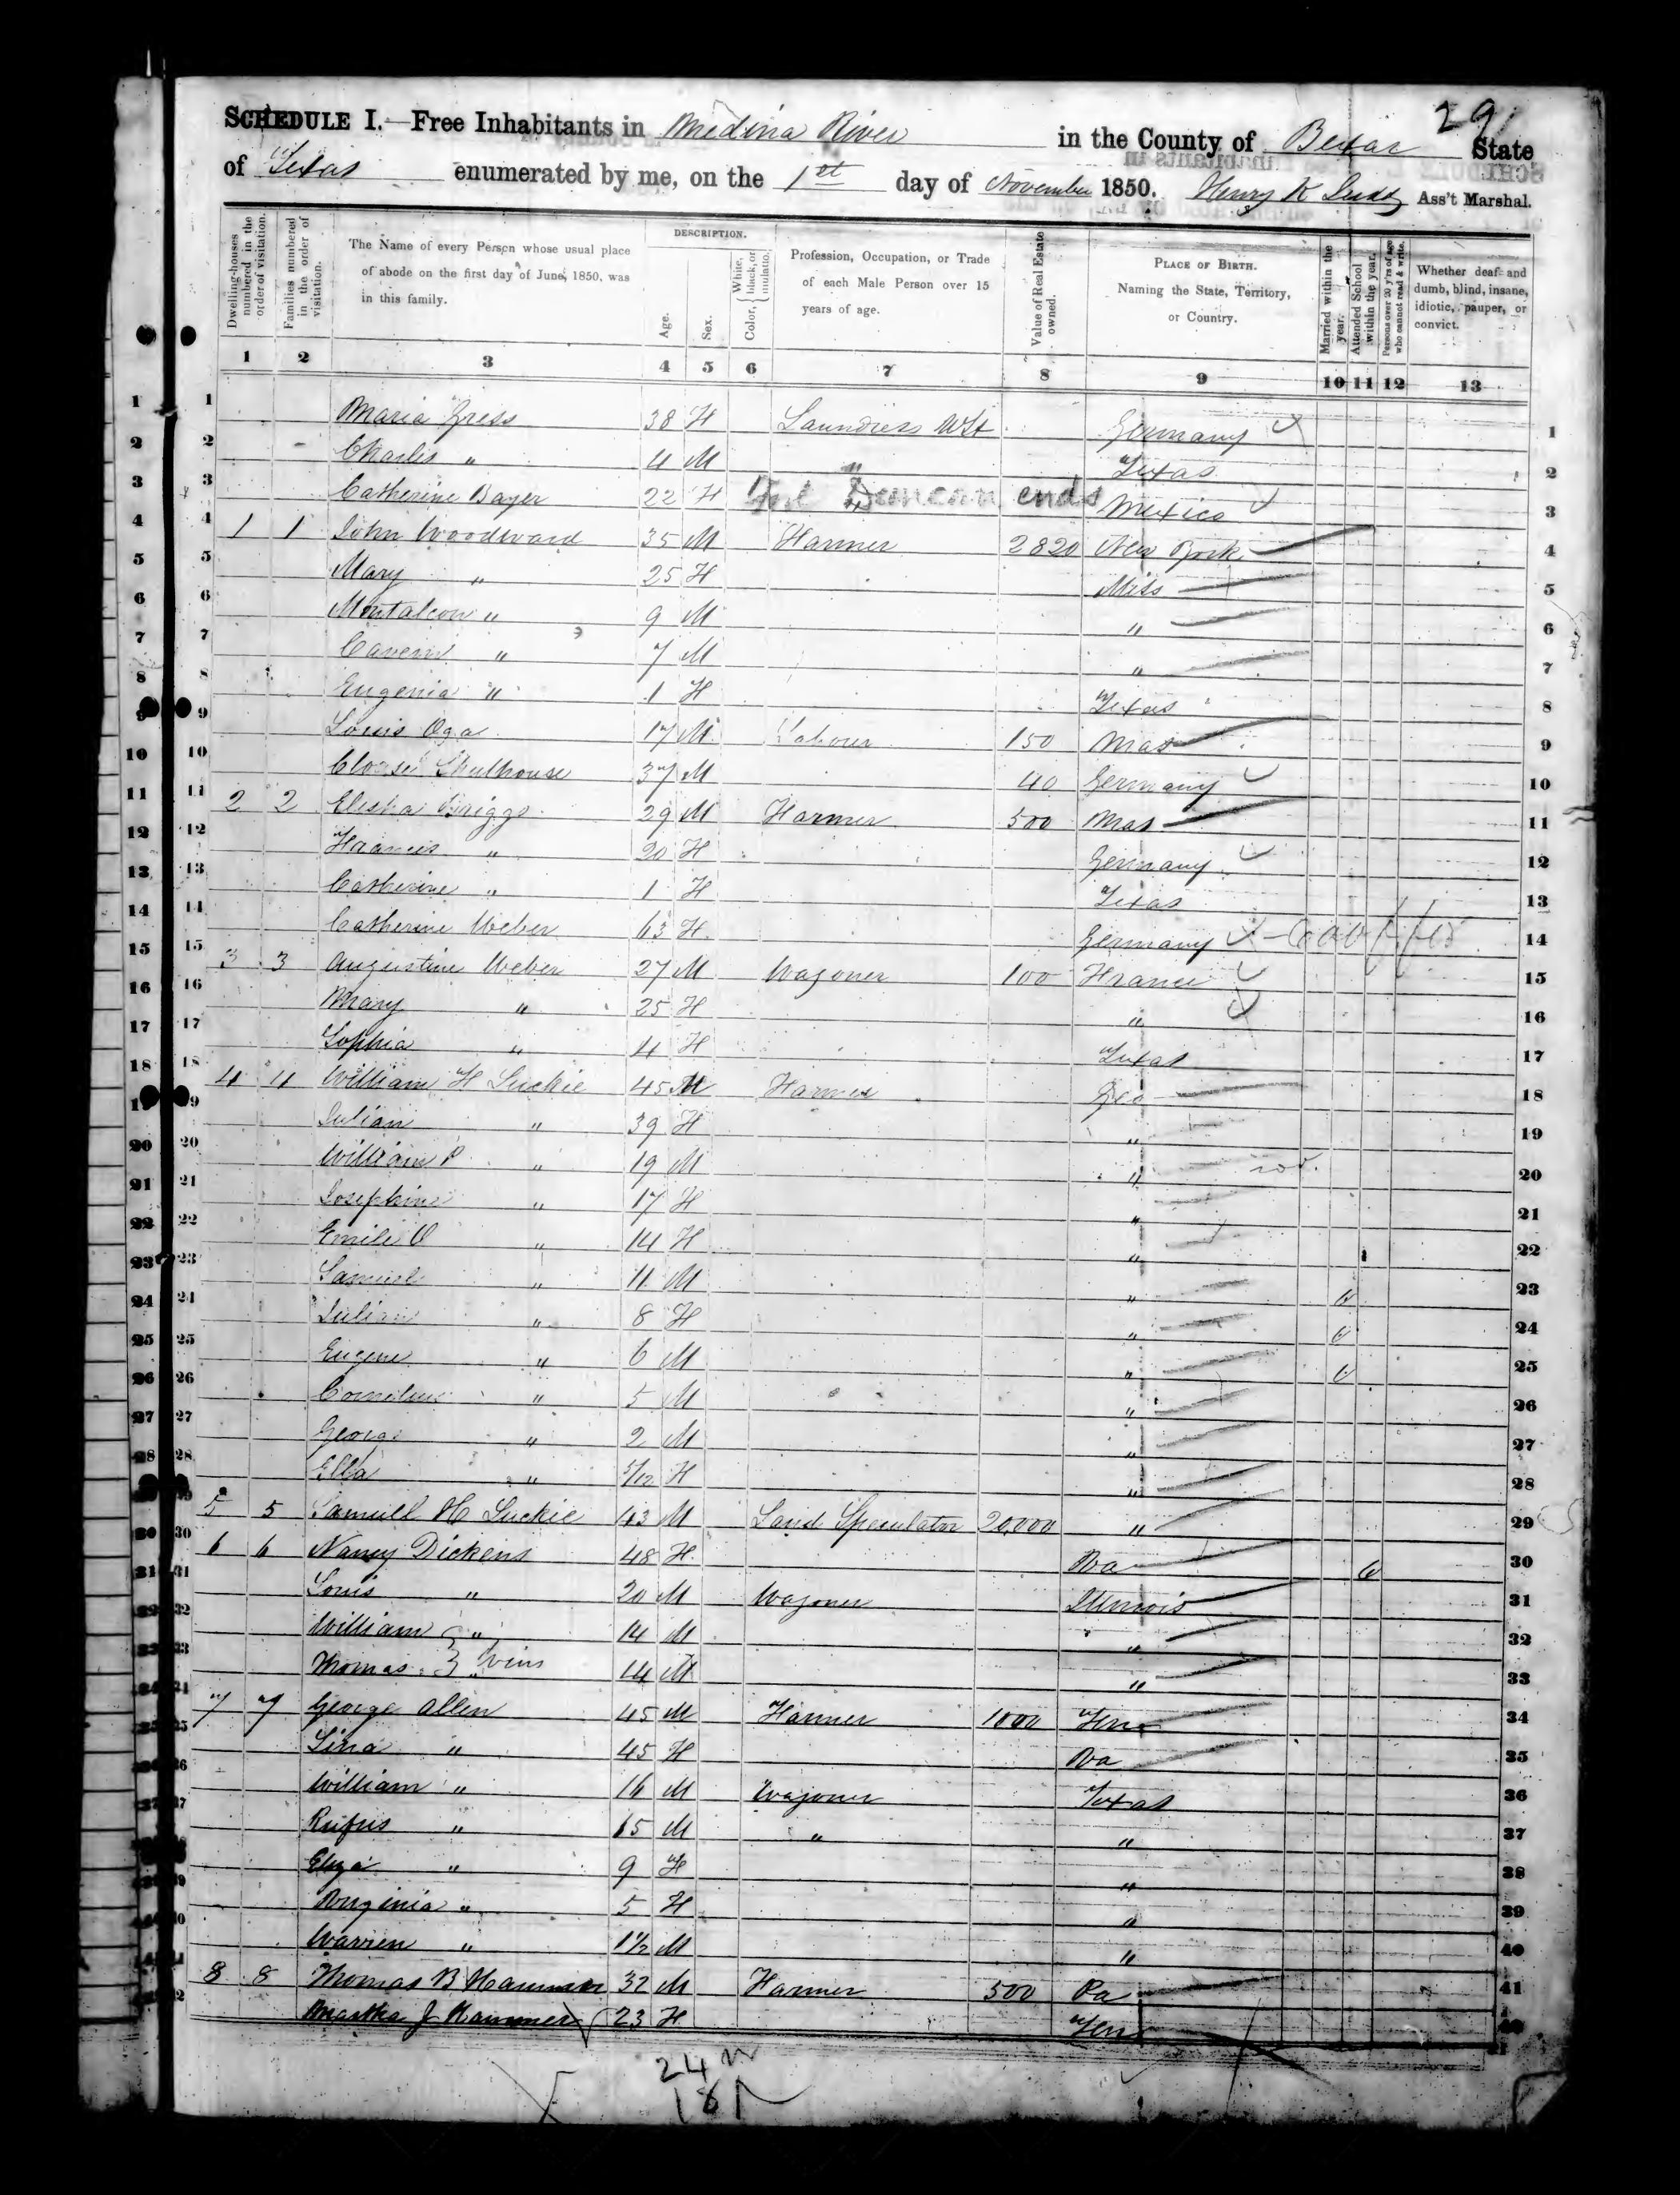 29
SCHEDULE I.—Free Inhabitants in Medina River in the County of Bexar State
of Texas enumerated by me, on the 1st day of November 1850. Henry K Ass't Marshal.
Dwelling-houses numbered in the order of visitation.
Families numbered in the order of visitation.
The Name of every Person whose usual place of abode on the first day of June, 1850, was in this family.
DESCRIPTION.
Age.
Sex.
Color, { White, black, or mulatto.
Profession, Occupation, or Trade of each Male Person over 15 years of age.
Value of Real Estate owned.
PLACE OF BIRTH. Naming the State, Territory, or Country.
Married within the year.
Attended School within the year.
Persons over 20 y'rs of age who cannot read & write.
Whether deaf and dumb, blind, insane, idiotic, pauper, or convict.
1 2 3 4 5 6 7 8 9 10 11 12 13
1 Maria Gress 38 F Laundress Germany 1
2 Charles " 4 M " Texas 2
3 Catherine Bayer 22 F " Mexico 3
Duncan ends
4 1 1 John Woodward 35 M Farmer 2820 New York 4
5 Mary " 25 F Miss 5
6 " 9 M " 6
7 " 7 M " 7
8 Eugenia " 1 F Texas 8
9 Louis Oga 17 M Labourer 150 Mas 9
10 37 M 40 Germany 10
11 2 2 Elisha Briggs 29 M Farmer 500 Mas 11
12 Frances " 20 F Germany 12
13 Catherine " 1 F Texas 13
14 Catherine Weber 63 F Germany 14
15 3 3 Augustine Weber 27 M Wagoner 100 France 15
16 Mary " 25 F " 16
17 Sophia " 4 F Texas 17
18 4 4 William F Luckie 45 M Farmer Geo 18
19 Julian " 39 F " 19
20 William P " 19 M " 20
21 Josephine " 17 F " 21
22 Emile O " 14 F " 22
23 Samuel " 11 M " 23
24 Julian " 8 F " 24
25 Eugene " 6 M " 25
26 Cornelius " 5 M " 26
27 George " 2 M " 27
28 Ella " 5/12 F " 28
29 5 5 Samuell H Luckie 43 M Land Speculator 20,000 " 29
30 6 6 Nancy Dickens 48 F Va 30
31 Louis " 20 M Wagoner Illinois 31
32 William " 14 M " 32
33 Thomas " } Twins 14 M " 33
34 7 7 George Allen 45 M Farmer 1000 Tenn 34
35 " 45 F Va 35
36 William " 16 M Wagoner Texas 36
37 Rufus " 15 M " " 37
38 Eliza " 9 F " 38
39 Virginia " 5 F " 39
40 Warren " 1½ M " 40
41 8 8 Thomas B Hammer 32 M Farmer 500 Pa 41
42 Martha J Hammer 23 F Tenn 42
24 M
18 F